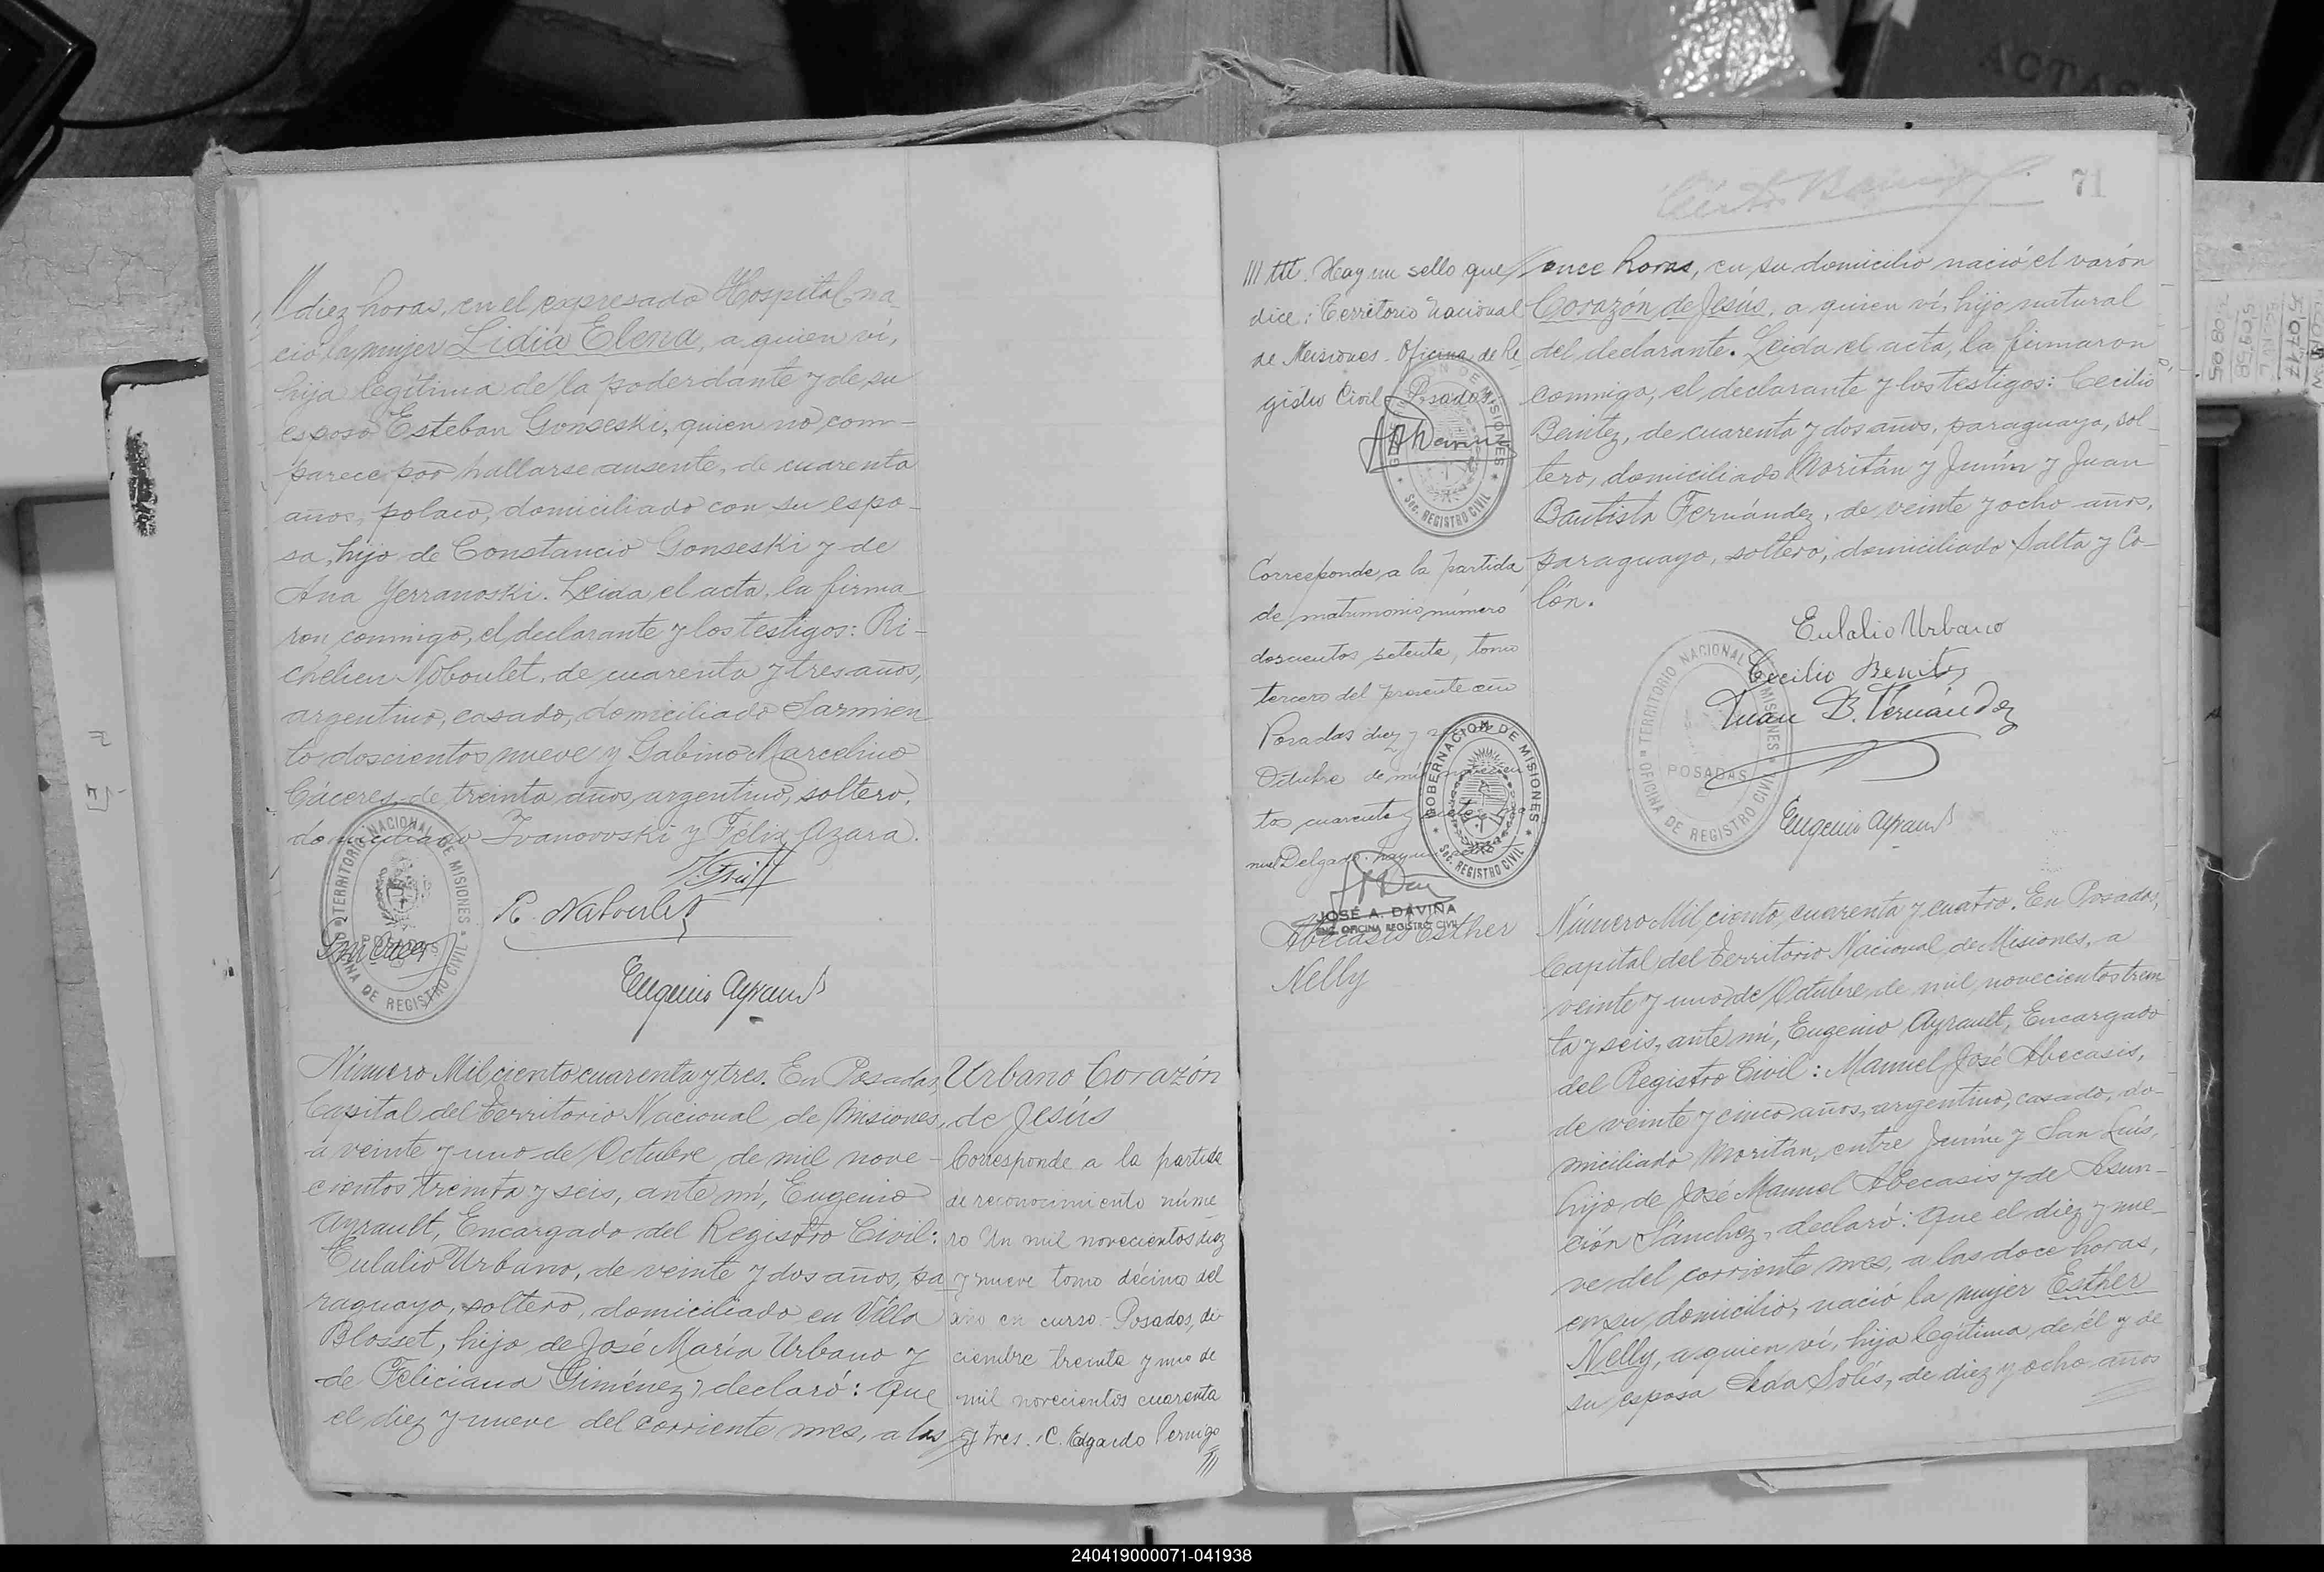 diez horas, en el expresado Hospital, na-
ció la mujer Lidia Elena, a quien ví,
hija legítima de la poderdante y de su
esposo Esteban Gonseski, quien no com-
parece por hallarse ausente, de cuarenta
años, polaco, domiciliado con su espo-
sa, hijo de Constancio Gonseski y de
Ana Yerranoski. Leida el acta, la firma-
ron conmigo, el declarante y los testigos: Ri-
chelieu Noboulet, de cuarenta y tres años,
argentino, casado, domiciliado Sarmien
to doscientos nueve y Gabino Marcelino
Cáceres, de treinta años, argentino, soltero,
domiciliado Ivanovoski y Félix Azara.
R. Naboulet
Eugenio Ayrault
TERRITORIO NACIONAL DE MISIONES
POSADAS
OFICINA DE REGISTRO CIVIL
Número Mil ciento cuarenta y tres. En Posadas,
Capital del Territorio Nacional de Misiones,
a veinte y uno de Octubre de mil nove-
cientos treinta y seis, ante mí, Eugenio
Ayrault, Encargado del Registro Civil:
Eulalio Urbano, de veinte y dos años, pa
raguayo, soltero, domiciliado en Villa
Blosset, hijo de José María Urbano y
de Feliciana Giménez, declaró: Que
el diez y nueve del corriente mes, a las
Urbano Corazón
de Jesús
Corresponde a la partida
de reconocimiento núme-
ro Un mil novecientos diez
y nueve tomo décimo del
año en curso. Posadas, di-
ciembre treinta y uno de
mil novecientos cuarenta
y tres. C. Edgardo Pernigo
71
Hay un sello que
dice: Territorio Nacional
de Misiones. Oficina de Re
gistro Civil Posadas.
GOBERNACION DE MISIONES
Sec. REGISTRO CIVIL
Corresponde a la partida
de matrimonio número
doscientos setenta, tomo
tercero del presente año
Posadas diez y
Octubre de mil novecien
tos cuarenta y
nuel Delgado. hay un
GOBERNACION DE MISIONES
Sec. REGISTRO CIVIL
JOSÉ A. DAVIÑA
ENC. OFICINA REGISTRO CIVIL
Abecasis Esther
Nelly
once horas, en su domicilio nació el varón
Corazón de Jesús, a quien ví, hijo natural
del declarante. Leida el acta, la firmaron
conmigo, el declarante y los testigos: Cecilio
Benitez, de cuarenta y dos años, paraguayo, sol-
tero, domiciliado Moritán y Junín y Juan
Bautista Fernández, de veinte y ocho años,
paraguayo, soltero, domiciliado Salta y Co-
lón.
Eulalio Urbano
Cecilio Benitez
Juan B. Fernández
Eugenio Ayrault
TERRITORIO NACIONAL DE MISIONES
POSADAS
OFICINA DE REGISTRO CIVIL
Número Mil ciento cuarenta y cuatro. En Posadas,
Capital del Territorio Nacional de Misiones, a
veinte y uno de Octubre de mil novecientos trein
ta y seis, ante mí, Eugenio Ayrault, Encargado
del Registro Civil: Manuel José Abecasis,
de veinte y cinco años, argentino, casado, do-
miciliado Moritán, entre Junín y San Luís,
hijo de José Manuel Abecasis y de Asun-
ción Sánchez, declaró: Que el diez y nue-
ve del corriente mes, a las doce horas,
en su domicilio, nació la mujer Esther
Nelly, a quien ví, hija legítima de él y de
su esposa Aida Solís, de diez y ocho años
240419000071-041938